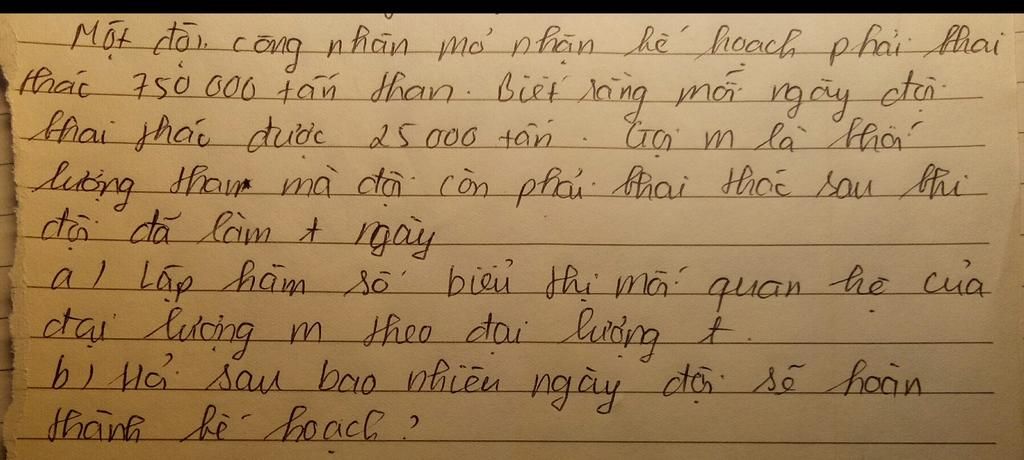 Một đội công nhân mỏ nhận kế hoạch phải khai
thác 750 000 tấn than. Biết rằng mỗi ngày đội
khai thác được 25 000 tấn. Gọi m là khối
lượng than mà đội còn phải khai thác sau khi
đội đã làm t ngày
a) Lập hàm số biểu thị mối quan hệ của
đại lượng m theo đại lượng t.
b) Hỏi sau bao nhiêu ngày đội sẽ hoàn
thành kế hoạch?